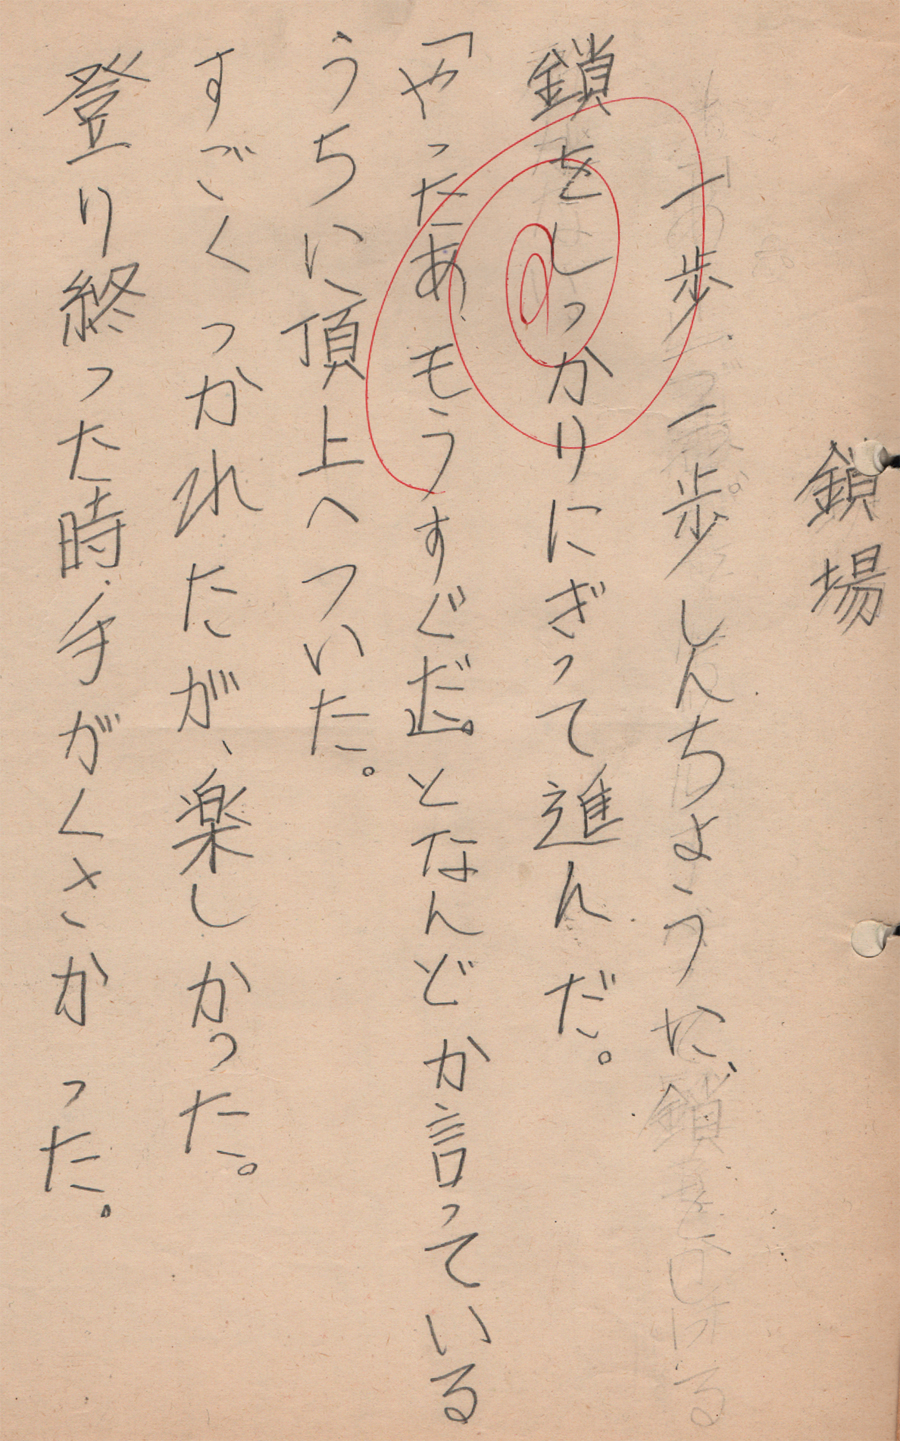 鎖場
一歩一歩しんちょうに、
鎖をしっかりにぎって進んだ。
「やったあ、もうすぐだ。」となんどか言っている
うちに頂上へついた。
すごくつかれたが、楽しかった。
登り終った時、手がくさかった。